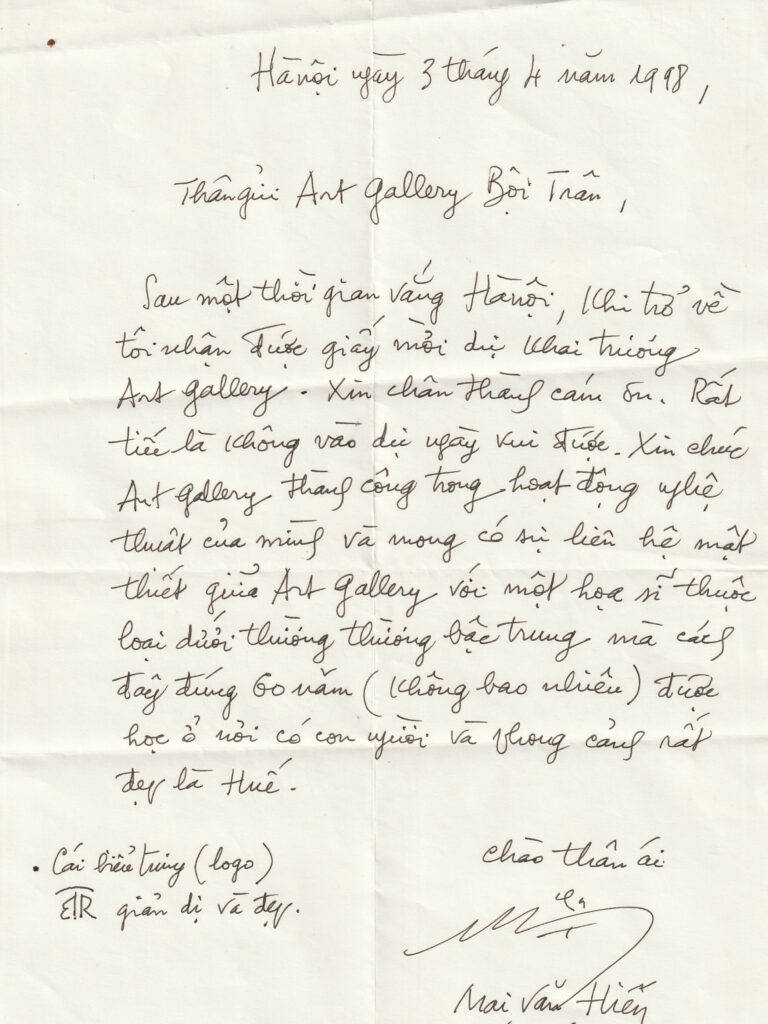 Hànội ngày 3 tháng 4 năm 1998,
Thân gửi Art Gallery Bội Trân,
Sau một thời gian vắng Hànội, Khi trở về
tôi nhận được giấy mời dự Khai trương
Art Gallery. Xin chân thành cám ơn. Rất
tiếc là không vào dự ngày vui được. Xin chúc
Art Gallery thành công trong hoạt động nghệ
thuật của mình và mong có sự liên hệ mật
thiết giữa Art Gallery với một họa sĩ thuộc
loại dưới thường thường bậc trung mà cách
đây đúng 60 năm (không bao nhiêu) được
học ở nơi có con người và phong cảnh rất
đẹp là Huế.
Chào thân ái
Mai Văn Hiến
• Cái biểu trưng (logo)
giản dị và đẹp.